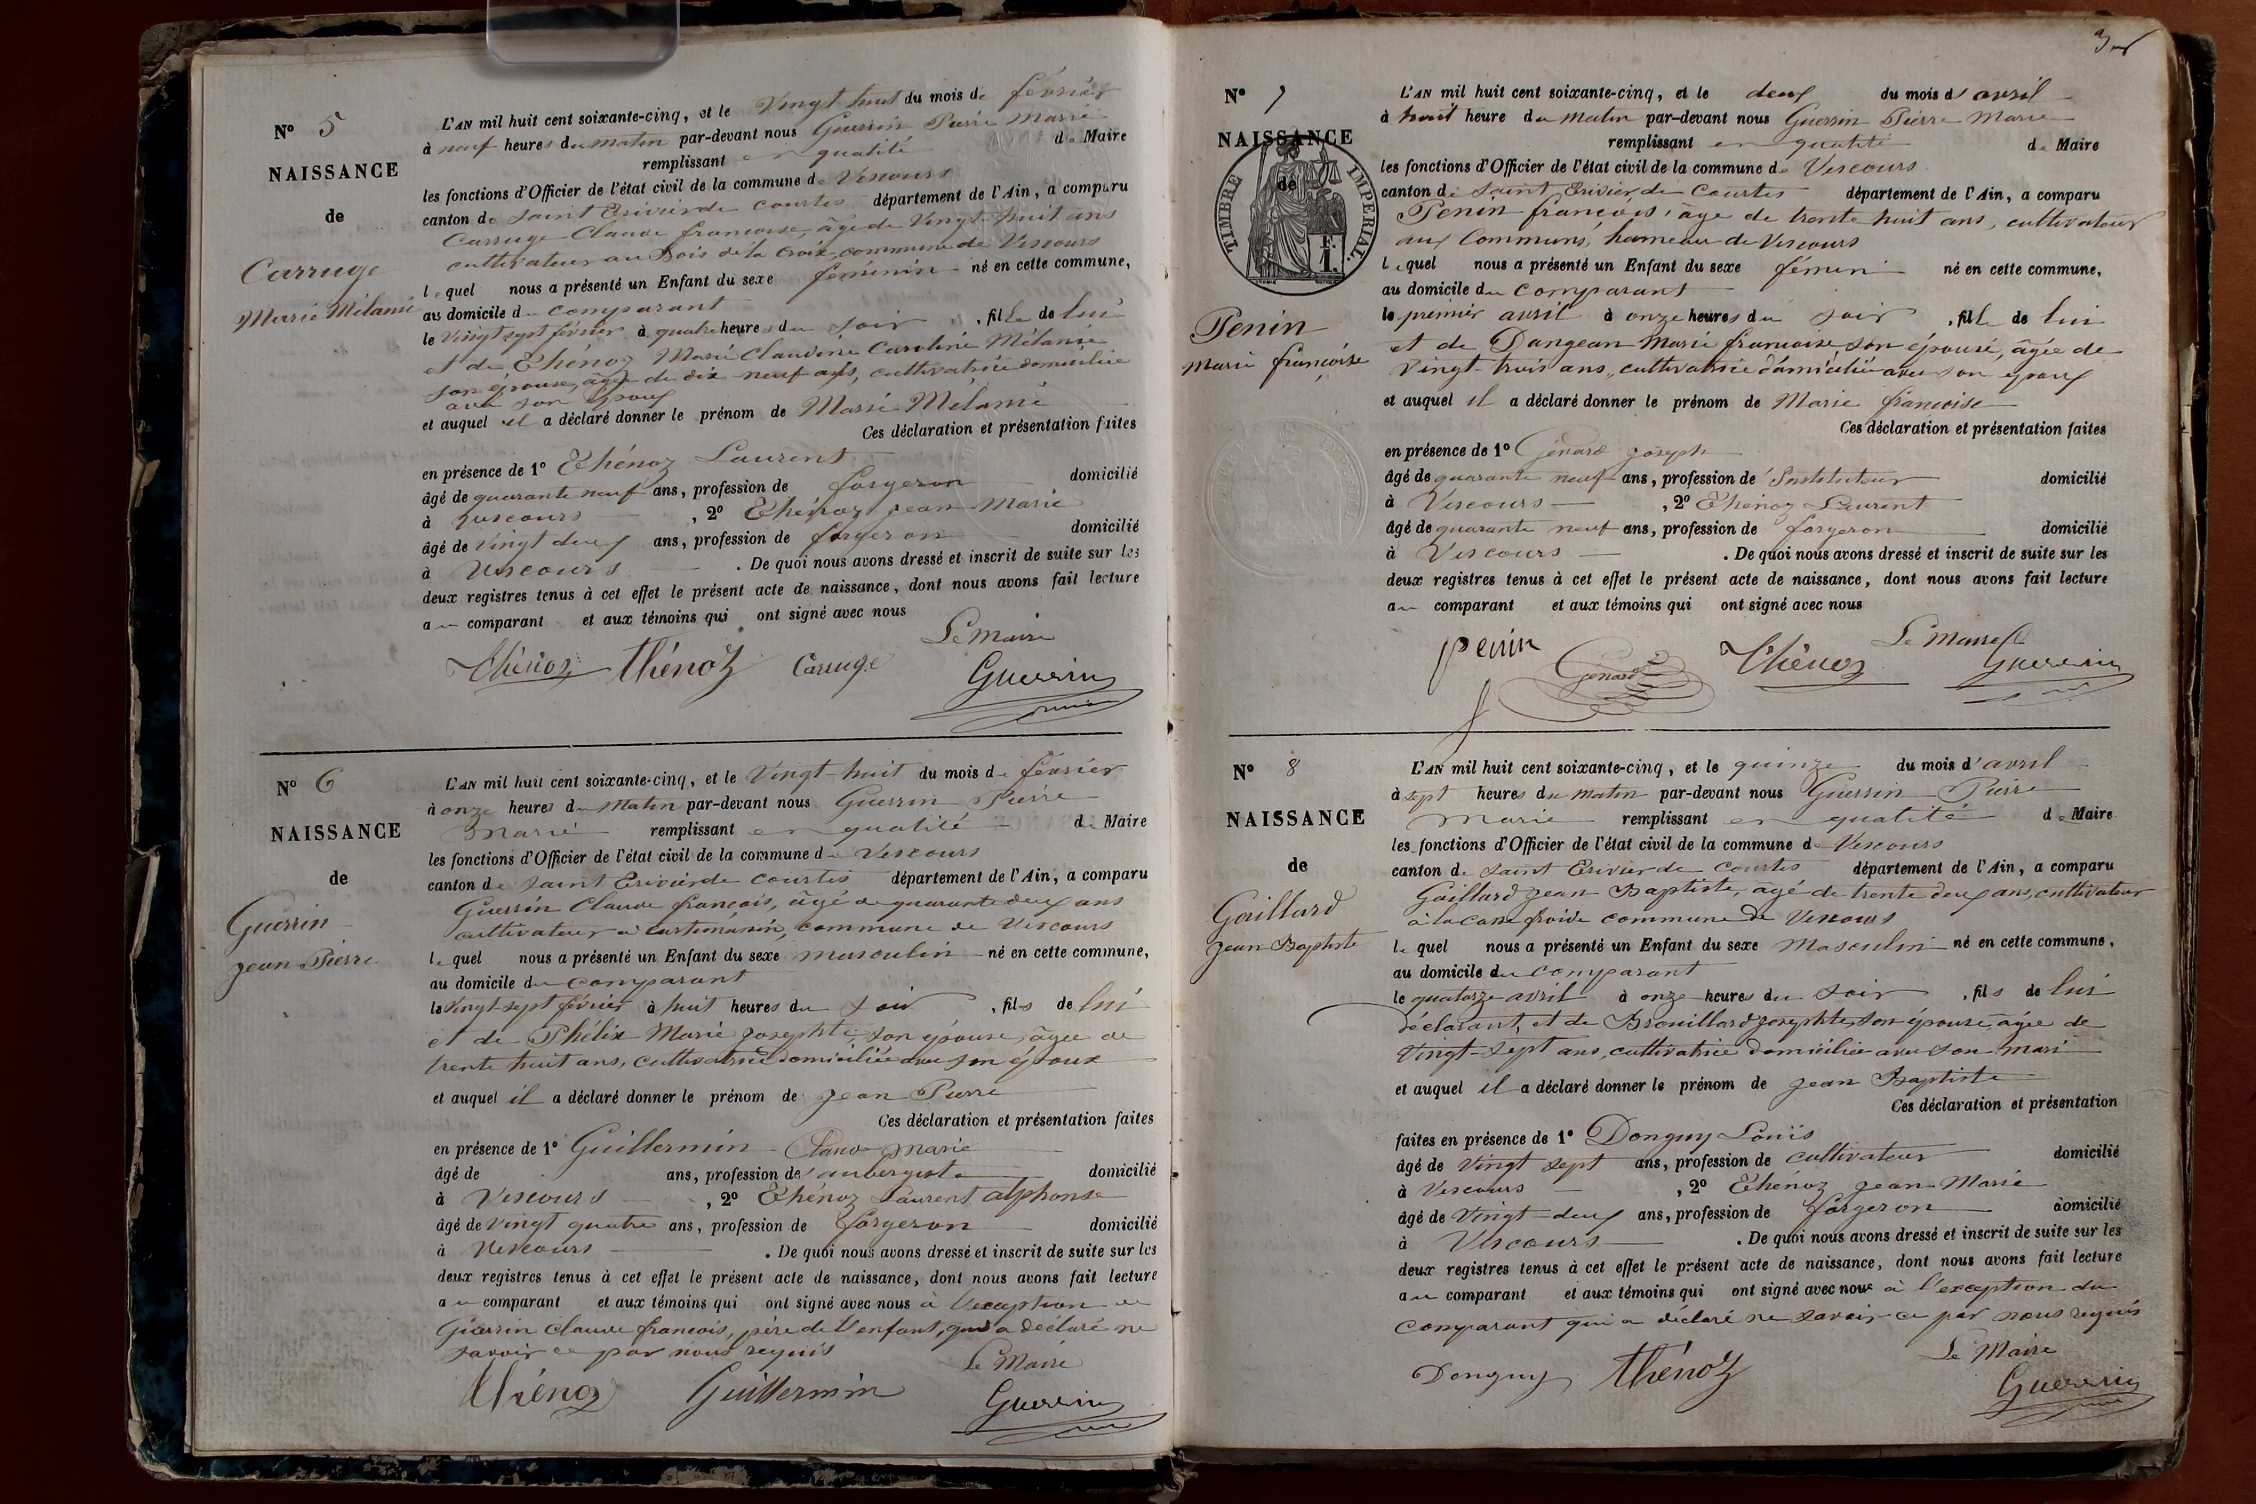 N° 5
NAISSANCE
de
Carruge
Marie Mélanie
L'AN mil huit cent soixante-cinq, et le Vingt huit du mois de février
à neuf heures du matin par-devant nous Guerrin Pierre Marie
remplissant en qualité de Maire
les fonctions d'Officier de l'état civil de la commune de Vescours
canton de Saint Trivier de Courtes département de l'Ain, a comparu
Carruge Claude françois, âgé de Vingt-huit ans
cultivateur au Bois de la Croix, commune de Vescours
lequel nous a présenté un Enfant du sexe féminin né en cette commune,
au domicile du comparant
le Vingt sept février à quatre heures du soir, fille de lui
et de Thénoz Marie Claudine Caroline Mélanie
son épouse, âgée de dix neuf ans, cultivatrice domiciliée
avec son époux
et auquel il a déclaré donner le prénom de Marie Mélanie
Ces déclaration et présentation faites
en présence de 1° Thénoz Laurent
âgé de quarante neuf ans, profession de forgeron domicilié
à Vescours, 2° Thénoz Jean Marie
âgé de vingt deux ans, profession de forgeron domicilié
à Vescours. De quoi nous avons dressé et inscrit de suite sur les
deux registres tenus à cet effet le présent acte de naissance, dont nous avons fait lecture
au comparant et aux témoins qui ont signé avec nous
Le Maire
Thénoz Thénoz Carruge Guerrin
N° 6
NAISSANCE
de
Guerrin
Jean Pierre
L'AN mil huit cent soixante-cinq, et le Vingt-huit du mois de février
à onze heures du matin par-devant nous Guerrin Pierre
Marie remplissant en qualité de Maire
les fonctions d'Officier de l'état civil de la commune de Vescours
canton de Saint Trivier de Courtes département de l'Ain, a comparu
Guerrin Claude françois, âgé de quarante deux ans
cultivateur à, commune de Vescours
lequel nous a présenté un Enfant du sexe masculin né en cette commune,
au domicile du comparant
le Vingt sept février à huit heures du soir, fils de lui
et de Phélix Marie Josephte, son épouse, âgée de
trente huit ans, cultivatrice domiciliée avec son époux
et auquel il a déclaré donner le prénom de Jean Pierre
Ces déclaration et présentation faites
en présence de 1° Guillermin Claude Marie
âgé de ans, profession d'aubergiste domicilié
à Vescours, 2° Thénoz Laurent alphonse
âgé de vingt quatre ans, profession de forgeron domicilié
à Vescours. De quoi nous avons dressé et inscrit de suite sur les
deux registres tenus à cet effet le présent acte de naissance, dont nous avons fait lecture
au comparant et aux témoins qui ont signé avec nous à l'exception de
Guerrin Claude françois, père de l'enfant, qui a déclaré ne
savoir ce par nous requis
Le Maire
Thénoz Guillermin Guerrin
N° 7
NAISSANCE
de
TIMBRE IMPERIAL
F.
1.
Penin
Marie françoise
L'AN mil huit cent soixante-cinq, et le deux du mois d'avril
à huit heure du matin par-devant nous Guerrin Pierre Marie
remplissant en qualité de Maire
les fonctions d'Officier de l'état civil de la commune de Vescours
canton de Saint Trivier de Courtes département de l'Ain, a comparu
Penin françois, âgé de trente huit ans, cultivateur
aux Communs, hameau de Vescours
lequel nous a présenté un Enfant du sexe fémini né en cette commune,
au domicile du comparant
le premier avril à onze heures du soir, fille de lui
et de Dangean Marie françoise, son épouse, âgée de
vingt-trois ans, cultivatrice domiciliée avec son époux
et auquel il a déclaré donner le prénom de Marie françoise
Ces déclaration et présentation faites
en présence de 1° Génard Joseph
âgé de quarante neuf ans, profession de Instituteur domicilié
à Vescours, 2° Thénoz Laurent
âgé de quarante neuf ans, profession de forgeron domicilié
à Vescours. De quoi nous avons dressé et inscrit de suite sur les
deux registres tenus à cet effet le présent acte de naissance, dont nous avons fait lecture
au comparant et aux témoins qui ont signé avec nous
Le Maire
penin Génard Thénoz Guerrin
N° 8
NAISSANCE
de
Gaillard
Jean Baptiste
L'AN mil huit cent soixante-cinq, et le quinze du mois d'avril
à sept heures du matin par-devant nous Guerrin Pierre
Marie remplissant en qualité de Maire
les fonctions d'Officier de l'état civil de la commune de Vescours
canton de Saint Trivier de Courtes département de l'Ain, a comparu
Gaillard Jean Baptiste, âgé de trente deux ans, cultivateur
à la case froide commune de Vescours
lequel nous a présenté un Enfant du sexe Masculin né en cette commune,
au domicile du comparant
le quatorze avril à onze heures du soir, fils de lui
déclarant, et de Brouillard Josephte, son épouse, âgée de
Vingt-sept ans, cultivatrice domiciliée avec son mari
et auquel il a déclaré donner le prénom de Jean Baptiste
Ces déclaration et présentation
faites en présence de 1° Donguy Louis
âgé de vingt sept ans, profession de cultivateur domicilié
à Vescours, 2° Thénoz Jean Marie
âgé de vingt-deux ans, profession de forgeron domicilié
à Vescours. De quoi nous avons dressé et inscrit de suite sur les
deux registres tenus à cet effet le présent acte de naissance, dont nous avons fait lecture
au comparant et aux témoins qui ont signé avec nous à l'exception du
comparant qui a déclaré ne savoir ce par nous requis
Le Maire
Donguy Thénoz Guerrin